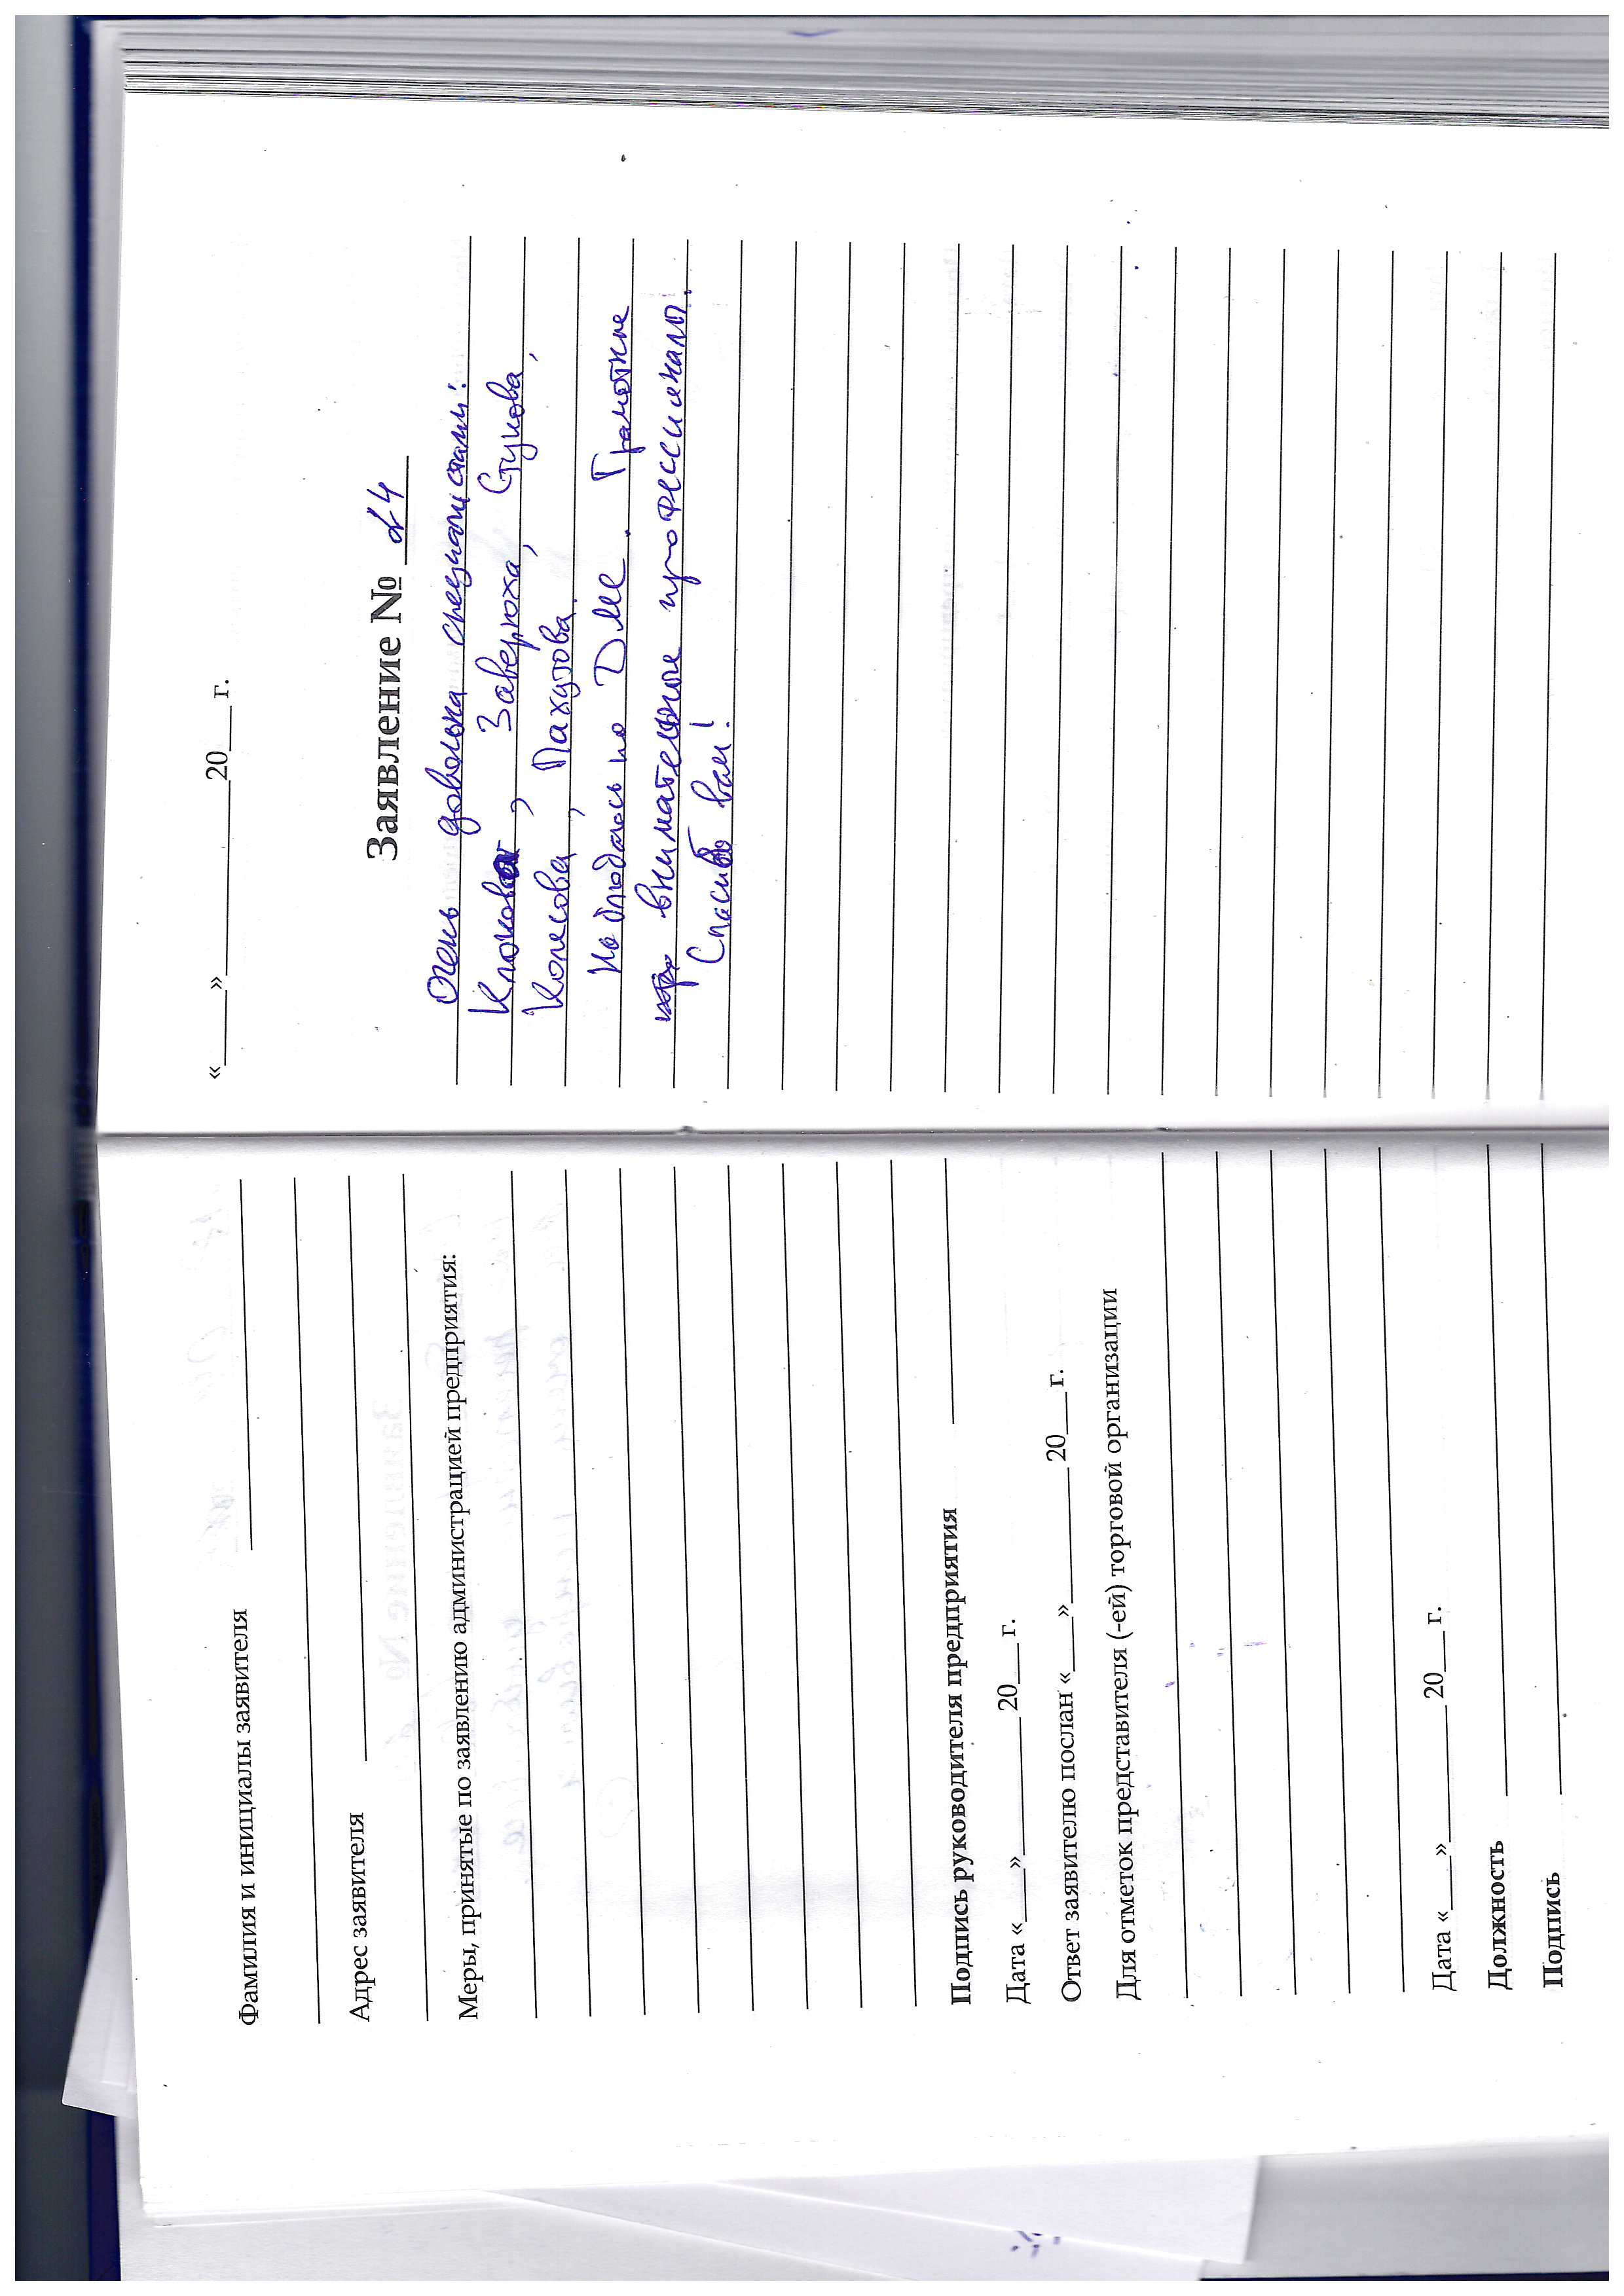 Фамилия и инициалы заявителя
Адрес заявителя
Меры, принятые по заявлению администрацией предприятия:
Подпись руководителя предприятия
Дата «___»__________20___г.
Ответ заявителю послан «___»__________20___г.
Для отметок представителя (-ей) торговой организации
Дата «___»__________20___г.
Должность
Подпись
«___»__________20___г.
Заявление №
Очень довольна специалистами:
Заверюха, Стукова,
Колесова, Пахутова.
Наблюдалась по ДМС. Грамотные
внимательные профессионалы.
Спасибо вам!